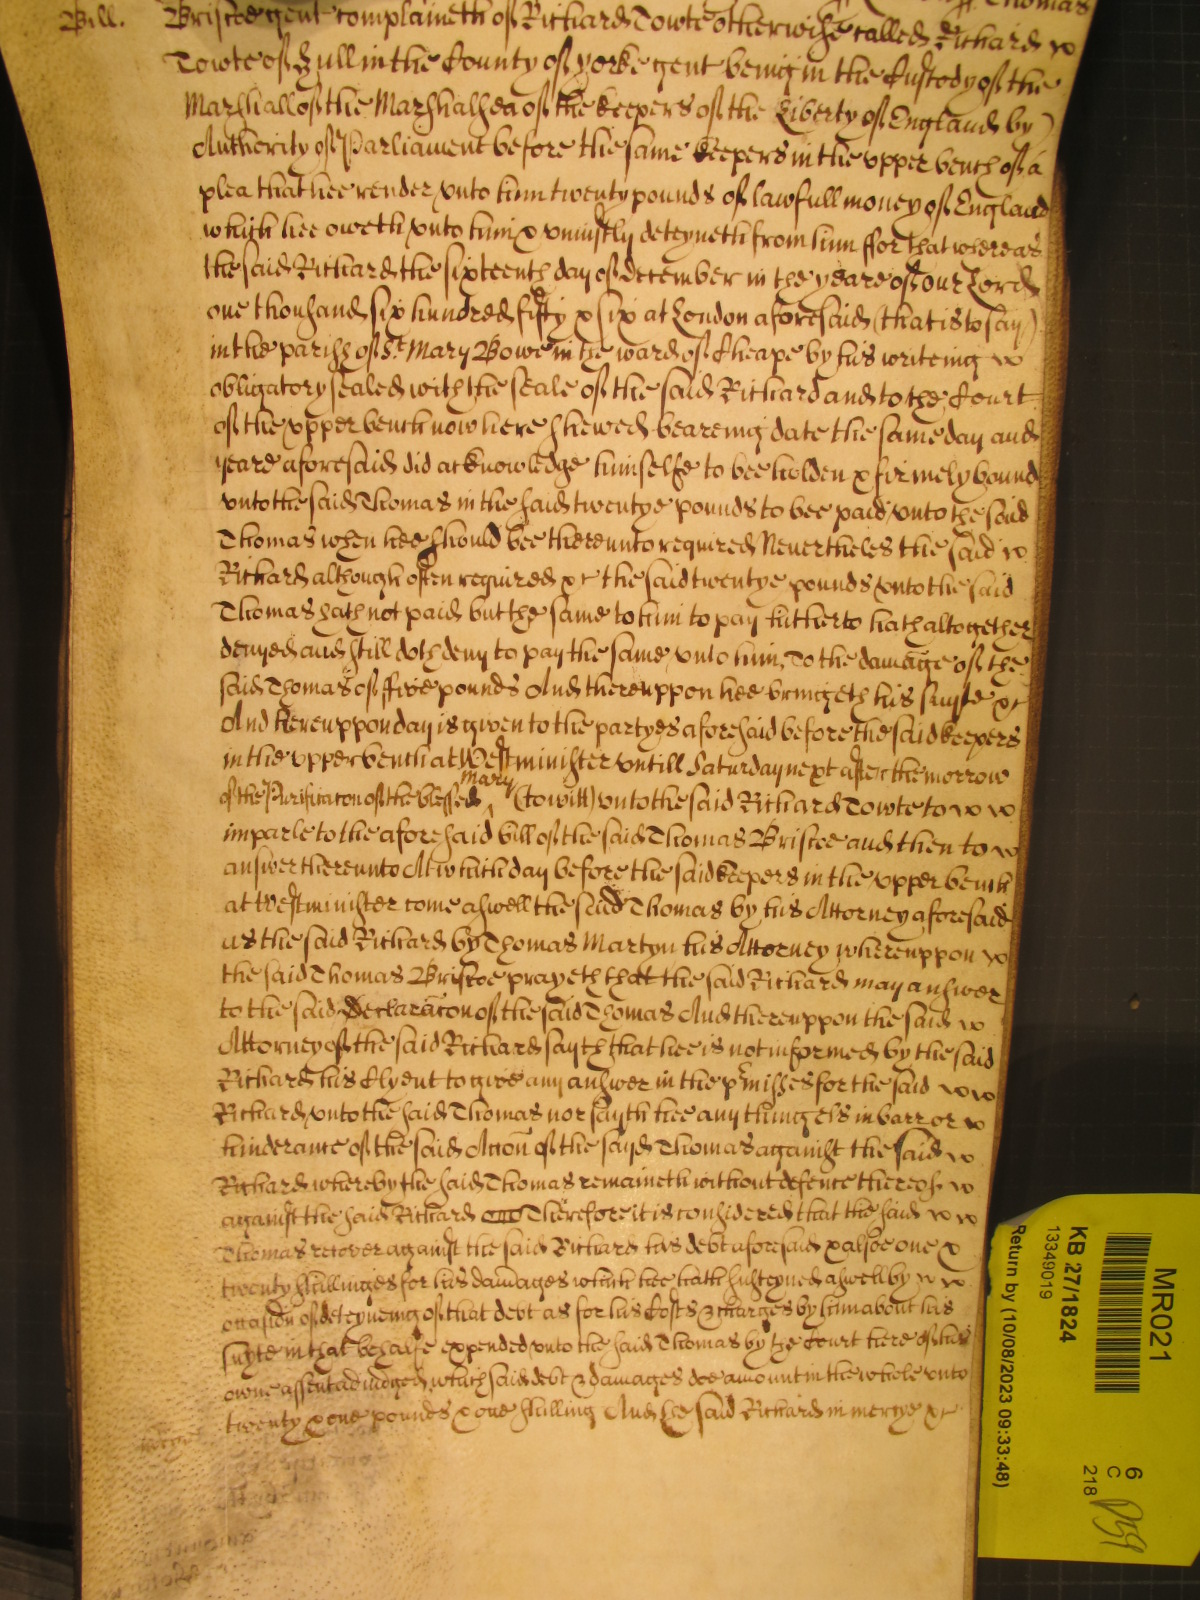 Thomas
Bill. Briscoe gent complaineth of Richard Towte otherwise called Richard
Towte of Hull in the County of Yorke gent being in the Custody of the
Marshall of the Marshalsea of the keepers of the Liberty of England by
Authority of Parliament before the same keepers in the upper bench of a
plea that hee render unto him twenty pounds of lawfull money of England
which hee oweth unto him & uniustly deteyneth from him ffor that whereas
the said Richard the sixteenth day of December in the yeare of our Lord
one thousand six hundred fifty & six at London aforesaid (that is to say)
in the parish of St Mary Bowe in the ward of Cheape by his writeing
obligatory sealed with the seale of the said Richard and to the Court
of the upper bench now here shewed beareing date the same day and
yeare aforesaid did acknowledge himselfe to bee holden & firmely bound
unto the said Thomas in the said twentye pounds to bee paid unto the said
Thomas when hee should bee thereunto required Nevertheles the said
Richard although often required &c the said twentye pounds unto the said
Thomas hath not paid but the same to him to pay hitherto hath altogether
denyed and still doth deny to pay the same unto him, To the damage of the
said Thomas of ffive pounds And thereuppon hee bringeth his suyte &c
And hereuppon day is given to the partyes aforesaid before the said keepers
in the upper bench at Westminster untill Saturday next after the morrow
of the Purificacon of the blessed Mary (to witt) unto the said Richard Towte to
imparle to the aforesaid bill of the said Thomas Briscoe and then to
answer thereunto At which day before the said keepers in the upper bench
at Westminster come aswell the said Thomas by his Attorney aforesaid
as the said Richard by Thomas Martyn his Attorney whereuppon
the said Thomas Briscoe prayeth that the said Richard may answer
to the said Declaracon of the said Thomas And thereuppon the said
Attorney of the said Richard sayth that hee is not informed by the said
Richard his Clyent to give any answer in the pmisses for the said
Richard unto the said Thomas nor sayth hee any thing els in barr or
hinderance of the said Accon of the sayd Thomas against the said
Richard whereby the said Thomas remaineth without defence thereof
against the said Richard Therefore it is considered that the said
Thomas recover against the said Richard his debt aforesaid & alsoe one &
twenty shillinges for his damages which hee hath susteyned aswell by
occasion of deteyneing of that debt as for his Costs & charges by him about his
suyte in that behalfe expended unto the said Thomas by the Court here of his
owne assent adiudged which said debt & damages doe amount in the whole unto
twenty & one pounds & one shilling And the said Richard in mercye &c
MR021
KB 27/1824
13349019
Return by (10/08/2023 09:33:48)
6
C
218